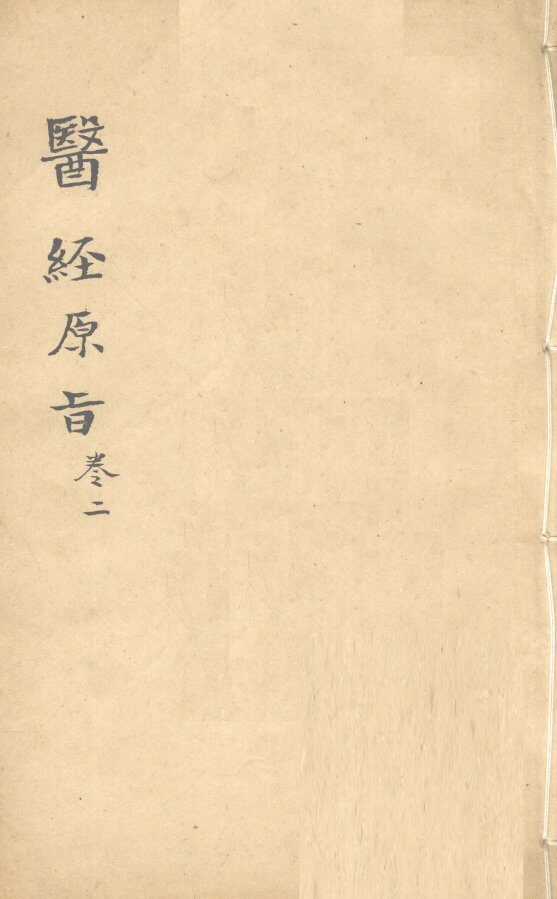 醫経原旨
卷二